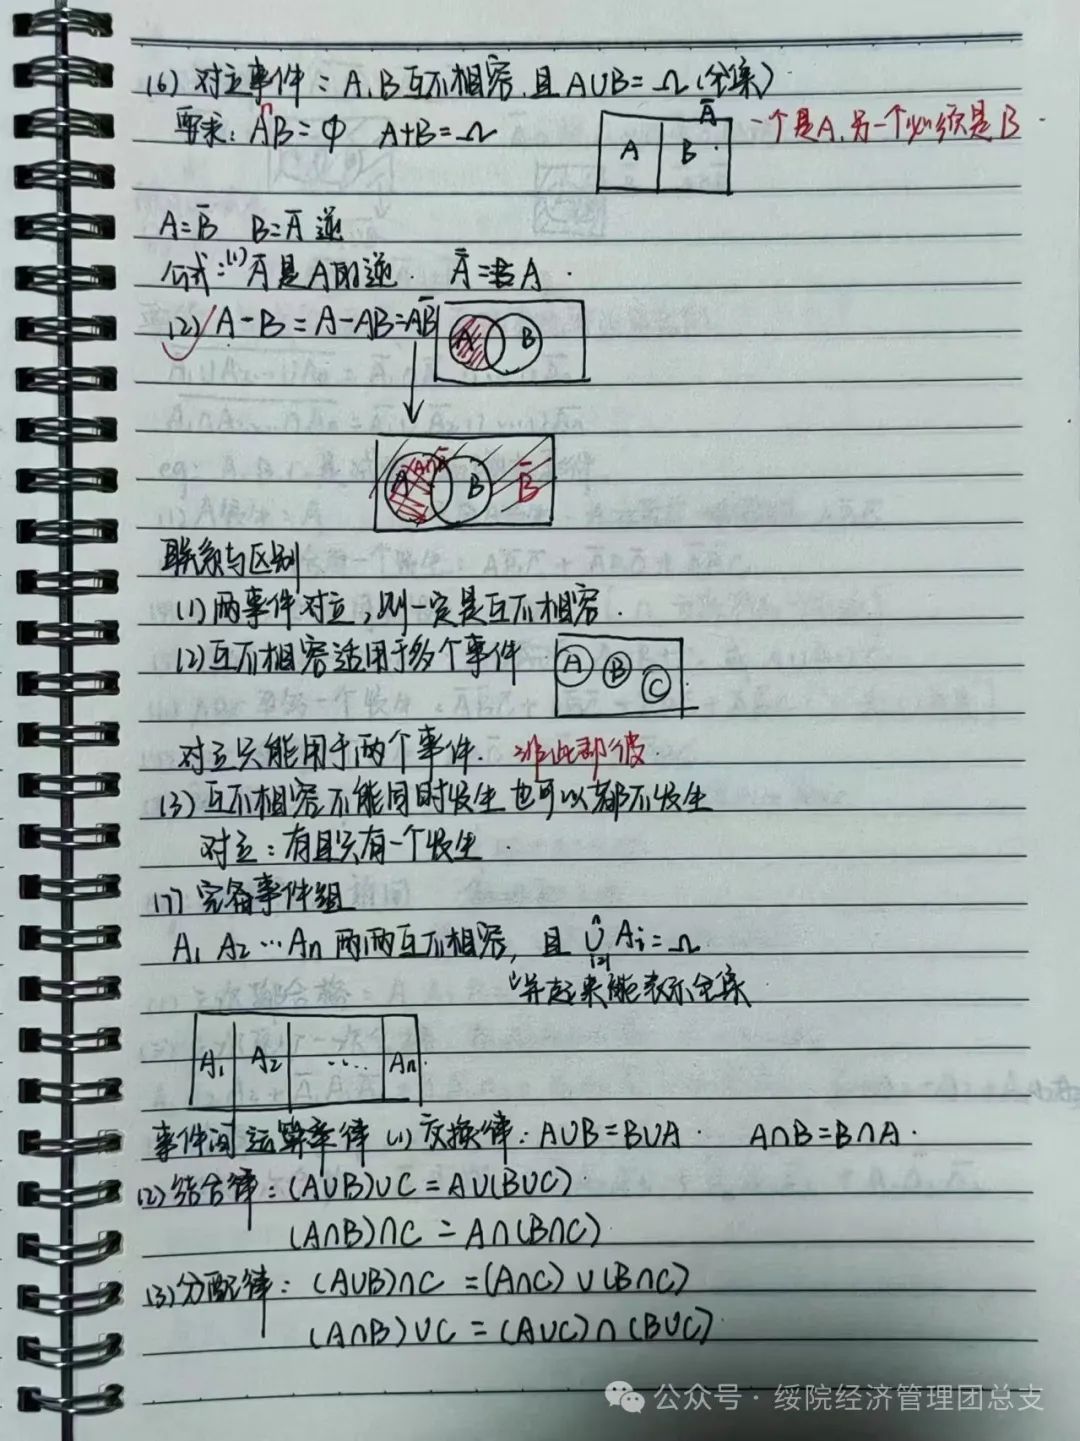 (6) 对立事件：A、B互不相容，且A∪B=Ω(全集)
要求：AB=Φ A+B=Ω
∩
Ā
A B
一个是A，另一个必须是B
A=B̄ B=Ā 逆
公式：(1) Ā是A的逆.
(2) A-B=A-AB=AB̄
A B
A B B̄
联系与区别
(1) 两事件对立，则一定是互不相容.
(2) 互不相容适用于多个事件
A B C
对立只能用于两个事件. 非此即彼.
(3) 互不相容不能同时发生也可以都不发生
对立：有且只有一个发生.
(7) 完备事件组
A₁ A₂ … Aₙ 两两互不相容，且 ⋃ⁿᵢ₌₁ Aᵢ=Ω
并起来能表示全集
A₁ A₂ ... Aₙ
事件间运算率律 (1) 交换律：A∪B=B∪A. A∩B=B∩A.
(2) 结合律：(A∪B)∪C=A∪(B∪C).
(A∩B)∩C=A∩(B∩C)
(3) 分配律：(A∪B)∩C=(A∩C)∪(B∩C)
(A∩B)∪C=(A∪C)∩(B∪C).
公众号·绥院经济管理团总支